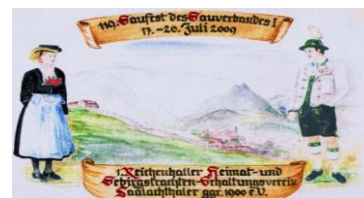 119. Gaufest des Gauverbandes I
17.-20. Juli 2009
1. Reichenhaller Heimat- und
Gebirgstrachten-Erhaltungsverein
Saalachthaler ggr. 1900 e.V.